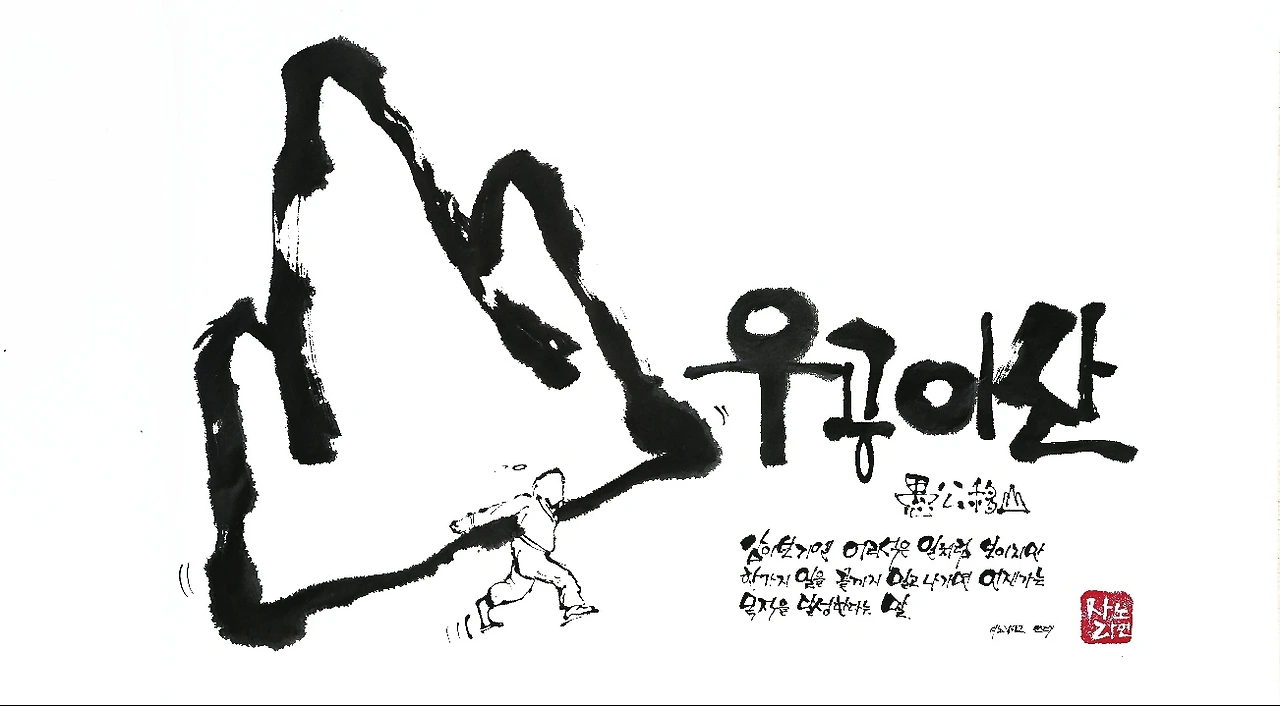 우공이산
愚公移山
남이보기엔 어리석은 일처럼 보이지만
한가지 일을 끝까지 밀고 나가면 언젠가는
목적을 달성한다는 말.